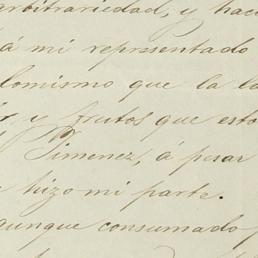 arbitrariedad, y hac
á mi representado
lo mismo que la lo
y frutos que esto
Jimenez, á pesar
hizo mi parte.
aunque consumado